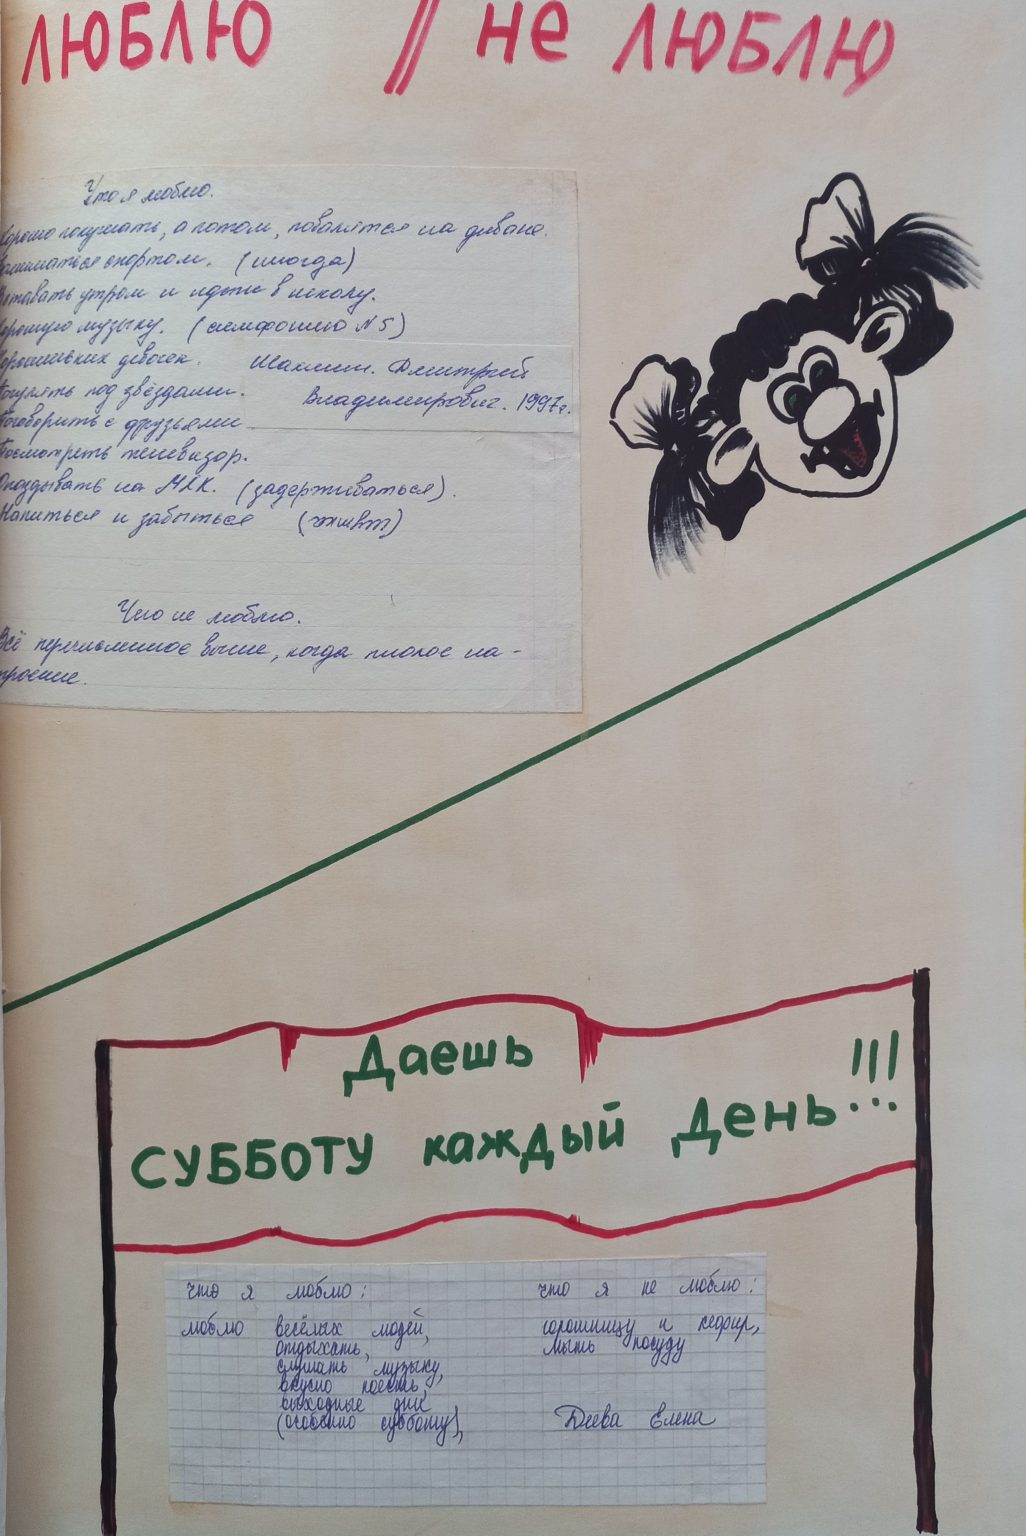 ЛЮБЛЮ // не ЛЮБЛЮ
Что я люблю.
Хорошо покушать, а потом, поваляться на диване.
Заниматься спортом. (иногда)
Вставать утром и идти в школу.
Хорошую музыку. (симфонию N 5)
Хорошеньких девочек.
Погулять под звёздами.
Поговорить с друзьями
Посмотреть телевизор.
Опаздывать на (задерживаться).
Напиться и забыться
Дмитрий
Владимирович. 1997г.
Что не люблю.
Всё перечисленное выше, когда плохое на-
строение.
Даешь
СУББОТУ каждый День!!!
что я люблю:
люблю весёлых людей,
отдыхать,
слушать музыку,
вкусно поесть,
выходные дни
(особенно субботу),
что я не люблю:
горошницу и кефир,
мыть посуду
Деева Елена